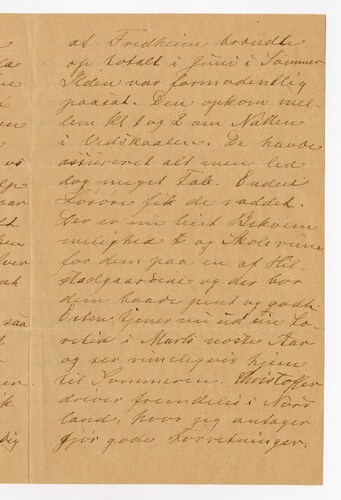 at Fredheim brændte
op totalt i Juni i Sommer
Ilden var formodentlig
paasat. Den opkom mel-
lem kl 1 og 2 om Natten
i Vedskaalen. De havde
assureret alt men led
dog meget Tab. Endeel
Løsøre fik de reddet.
Der er nu leiet Bekvem
melighed til og Skolerum
for dem paa en af Hil-
stadgaardene og der bor
dem baade pent og godt.
tjener nu ud sin Læ-
retid i Marts næste Aar
og ser rimeligvis hjem
til Sommeren. Christoffer
driver fremdeles i Nord
land, hvor jeg antager
gjør gode Forretninger.